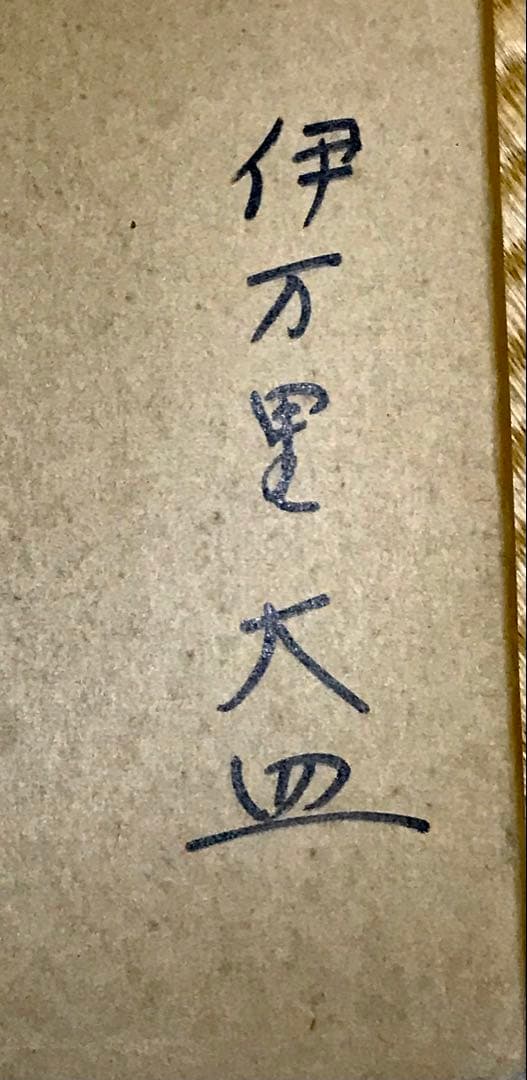 伊万里大皿